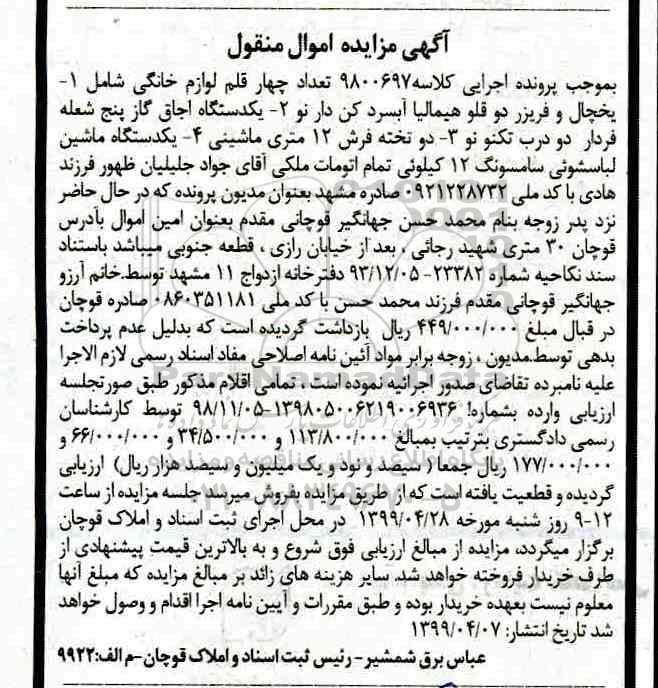 آگهی مزایده اموال منقول
بموجب پرونده اجرایی کلاسه۹۸۰۰۶۹۷ تعداد چهار قلم لوازم خانگی شامل ۱-
یخچال و فریزر دو قلو هیمالیا آبسرد کن دار نو ۲- یکدستگاه اجاق گاز پنج شعله
فردار دو درب تکنو نو ۳- دو تخته فرش ۱۲ متری ماشینی ۴- یکدستگاه ماشین
لباسشوئی سامسونگ ۱۲ کیلوئی تمام اتومات ملکی آقای جواد جلیلیان ظهور فرزند
هادی با کد ملی ۰۹۲۱۲۲۸۷۳۲ صادره مشهد بعنوان مدیون پرونده که در حال حاضر
نزد پدر زوجه بنام محمد حسن جهانگیر قوچانی مقدم بعنوان امین اموال بآدرس
قوچان ۳۰ متری شهید رجائی ، بعد از خیابان رازی ، قطعه جنوبی میباشد باستناد
سند نکاحیه شماره ۲۳۳۸۲- ۹۳/۱۲/۰۵ دفترخانه ازدواج ۱۱ مشهد توسط.خانم آرزو
جهانگیر قوچانی مقدم فرزند محمد حسن با کد ملی ۰۸۶۰۳۵۱۱۸۱ صادره قوچان
در قبال مبلغ ۴۴۹/۰۰۰/۰۰۰ ریال بازداشت گردیده است که بدلیل عدم پرداخت
بدهی توسط.مدیون ، زوجه برابر مواد آئین نامه اصلاحی مفاد اسناد رسمی لازم الاجرا
علیه نامبرده تقاضای صدور اجرائیه نموده است ، تمامی اقلام مذکور طبق صورتجلسه
ارزیابی وارده بشماره! ۱۳۹۸۰۵۰۰۶۲۱۹۰۰۶۹۳۶-۹۸/۱۱/۰۵ توسط کارشناسان
رسمی دادگستری بترتیب بمبالغ ۱۱۳/۸۰۰/۰۰۰ و ۳۴/۵۰۰/۰۰۰ و ۶۶/۰۰۰/۰۰۰ و
۱۷۷/۰۰۰/۰۰۰ ریال جمعا ( سیصد و نود و یک میلیون و سیصد هزار ریال) ارزیابی
گردیده و قطعیت یافته است که از طریق مزایده بفروش میرسد جلسه مزایده از ساعت
۹-۱۲ روز شنبه مورخه ۱۳۹۹/۰۴/۲۸ در محل اجرای ثبت اسناد و املاک قوچان
برگزار میگردد، مزایده از مبالغ ارزیابی فوق شروع و به بالاترین قیمت پیشنهادی از
طرف خریدار فروخته خواهد شد. سایر هزینه های زائد بر مبالغ مزایده که مبلغ آنها
معلوم نیست بعهده خریدار بوده و طبق مقررات و آیین نامه اجرا اقدام و وصول خواهد
شد تاریخ انتشار: ۱۳۹۹/۰۴/۰۷
عباس برق شمشیر - رئیس ثبت اسناد و املاک قوچان-م الف:۹۹۲۲